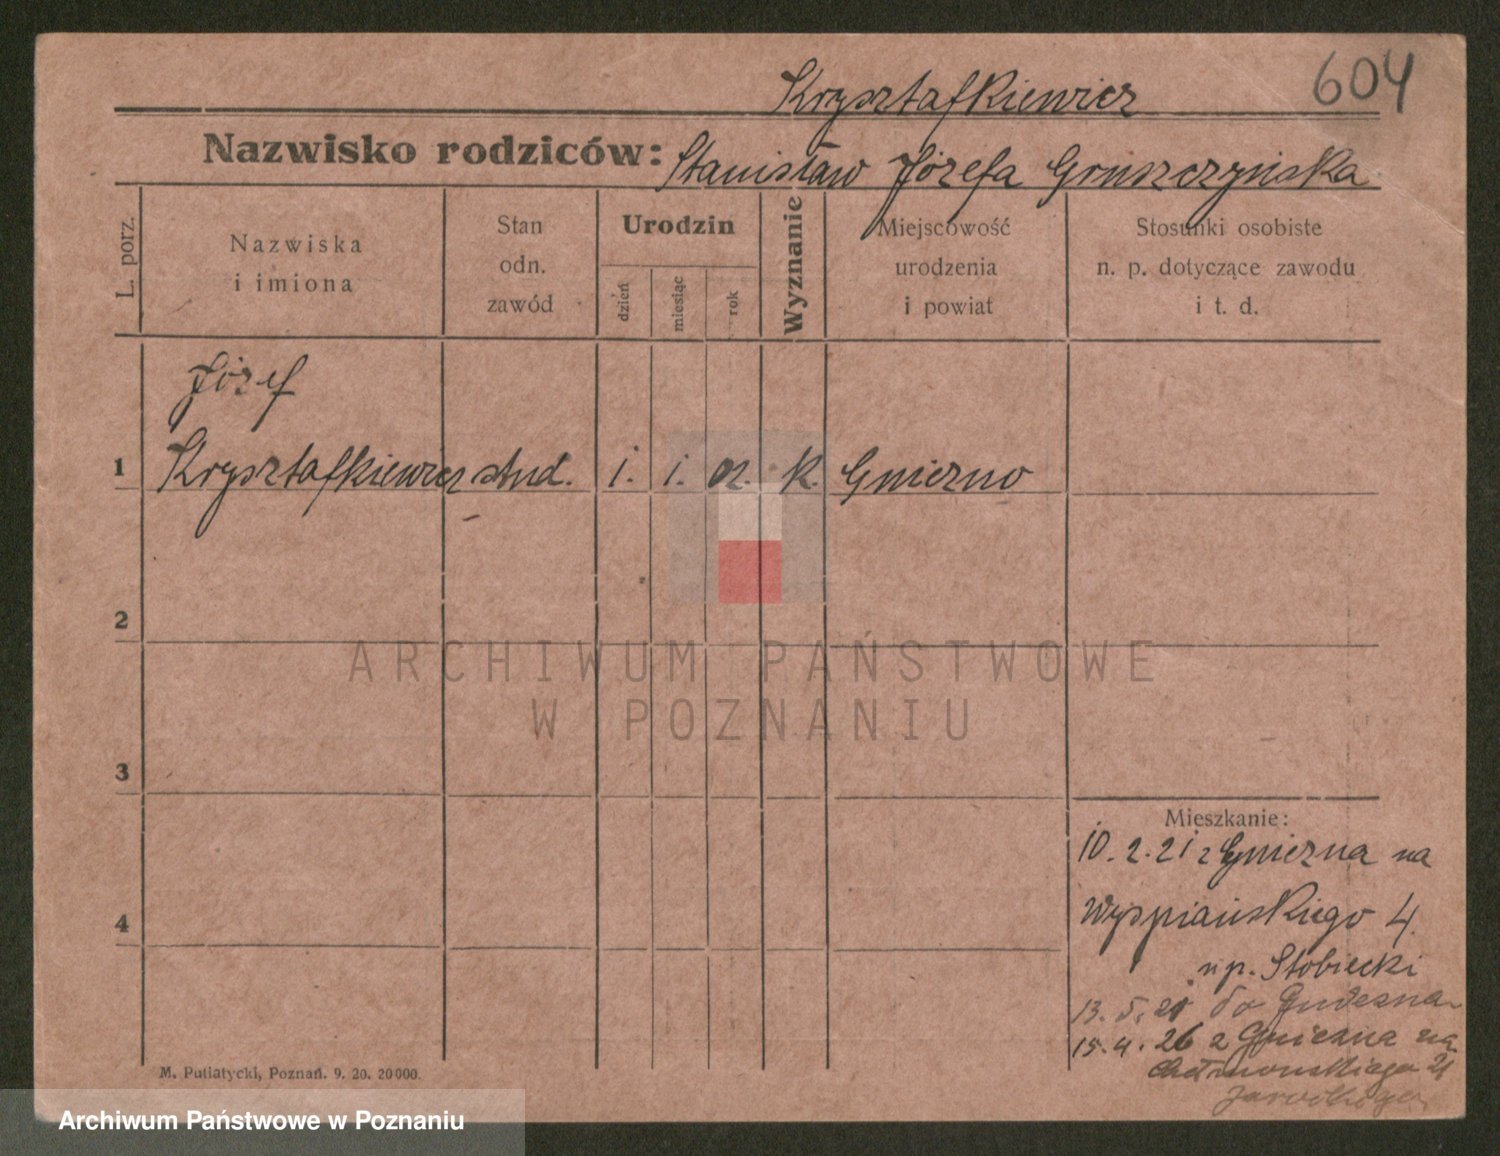 Krysztafkiewicz 604
Nazwisko rodziców: Stanisław Józefa Gruszczyńska
L. porz.
Nazwiska
i imiona
Stan
odn.
zawód
Urodzin
dzień
miesiąc
rok
Wyznanie
Miejscowość
urodzenia
i powiat
Stosunki osobiste
n. p. dotyczące zawodu
i t. d.
Józef
1 Krysztafkiewicz stud. 1. 1. 02. k. Gniezno
2
ARCHIWUM PAŃSTWOWE
W POZNANIU
3
Mieszkanie:
10.2.21 z Gniezna na
Wyspiańskiego 4
4
up. Stobiecki
13.5.21 do Gniezna
15.4.26 z Gniezna na
Chełmońskiego 21
M. Putiatycki, Poznań. 9. 20. 20000.
Archiwum Państwowe w Poznaniu